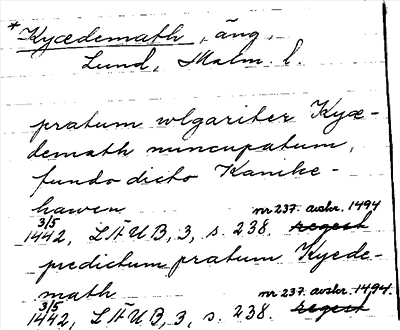 *Kyædemath, äng,
Lund, Malm. l.
pratum wlgariter Kyæ-
demath nuncupatum,
fundo dicto Kanike-
hawen
3/5 1442, LÄUB, 3, s. 238. nr 237. avskr. 1494 regest
predictum pratum Kyede-
math
3/5 1442, LÄUB, 3, s. 238. nr 237. avskr. 1494. regest